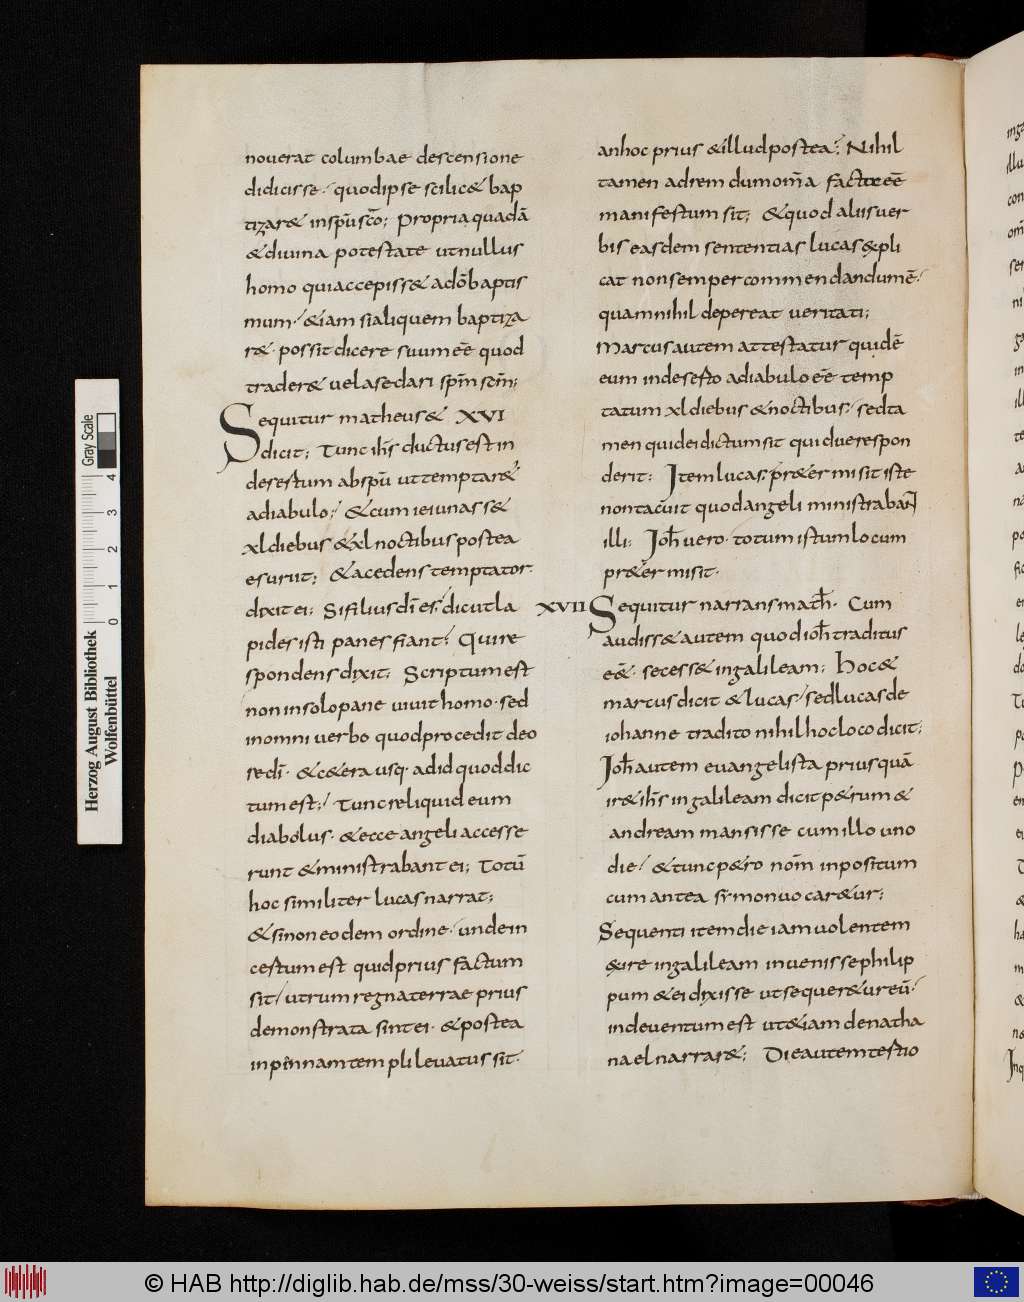 nouerat columbae descensione
didicisse quodipse scilic& bap
tizar& insp̄uscō; Propria quadā
&diuina potestate utnullus
homo quiaccepiss& adōbaptis
mum &iam sialiquem baptiza
r& possit dicere suumēē quod
trader& uelasedari sp̄m scm̄;
Sequitur matheus& XVI
dicit; Tunc ih̄s ductusest in
desestum absp̄ū uttemptar&
adiabulo; &cum ieiunass&
xl diebus &xl noctibuspostea
esuriit; &acedens temptator
dixit ei; Sifiliusdī es; dicutla
pides isti panes fiant; Quire
spondens dixit; Scriptumest
noninsolopane uiuithomo sed
inomni uerbo quodprocedit deo
redī &c&era usq· adid quoddic
tumest; Tuncreliquid eum
diabolus &ecce angeli accesse
runt &ministrabant ei; Totū
hoc similiter lucasnarrat;
&sinon eodem ordine undein
cestumest quidprius factum
sit utrum regnaterrae prius
demonstrata sintei &postea
inpinnamtempli leuatus sit
anhoc prius &illudpostea; Nihil
tamen adrem dumom̄a factaeēē
manifestum sit; &quod aliisuer
bis easdem sententias lucas expli
cat nonsempercommendandumē
quamnihil depereat ueritati;
Marcusautem attestatur quidē
eum indeserto adiabuloēē temp
tatum xl diebus &noctibus; sedta
men quideidictumsit quiduerespon
derit; Item lucas; pr&ermisit iste
nontacuit quodangeli ministraban
illi; Joh̄ uero totum istumlocum
pr&ermisit
XVII Sequitur narrans math̄ Cum
audiss&autem quodioh̄traditus
eē& secess&ingalileam; Hoc&
marcusdicit &lucas sedlucasde
iohanne tradito nihilhoclocodicit;
Joh̄autem euangelista priusquā
ir&ih̄s ingalileam dicitp&rum&
andream mansisse cumillo uno
die &tuncp&ro nom̄ inpositum
cumantea symonuocar&ur;
Sequenti itemdie iamuolentem
exire ingalileam inuenissephilip
pum &ei dixisse utsequer&ureū
indeuentumest ut&iam denatha
nael narrar&; Dieautemtertio
Herzog August Bibliothek
Wolfenbüttel
0 1 2 3 4
Gray Scale
© HAB http://diglib.hab.de/mss/30-weiss/start.htm?image=00046